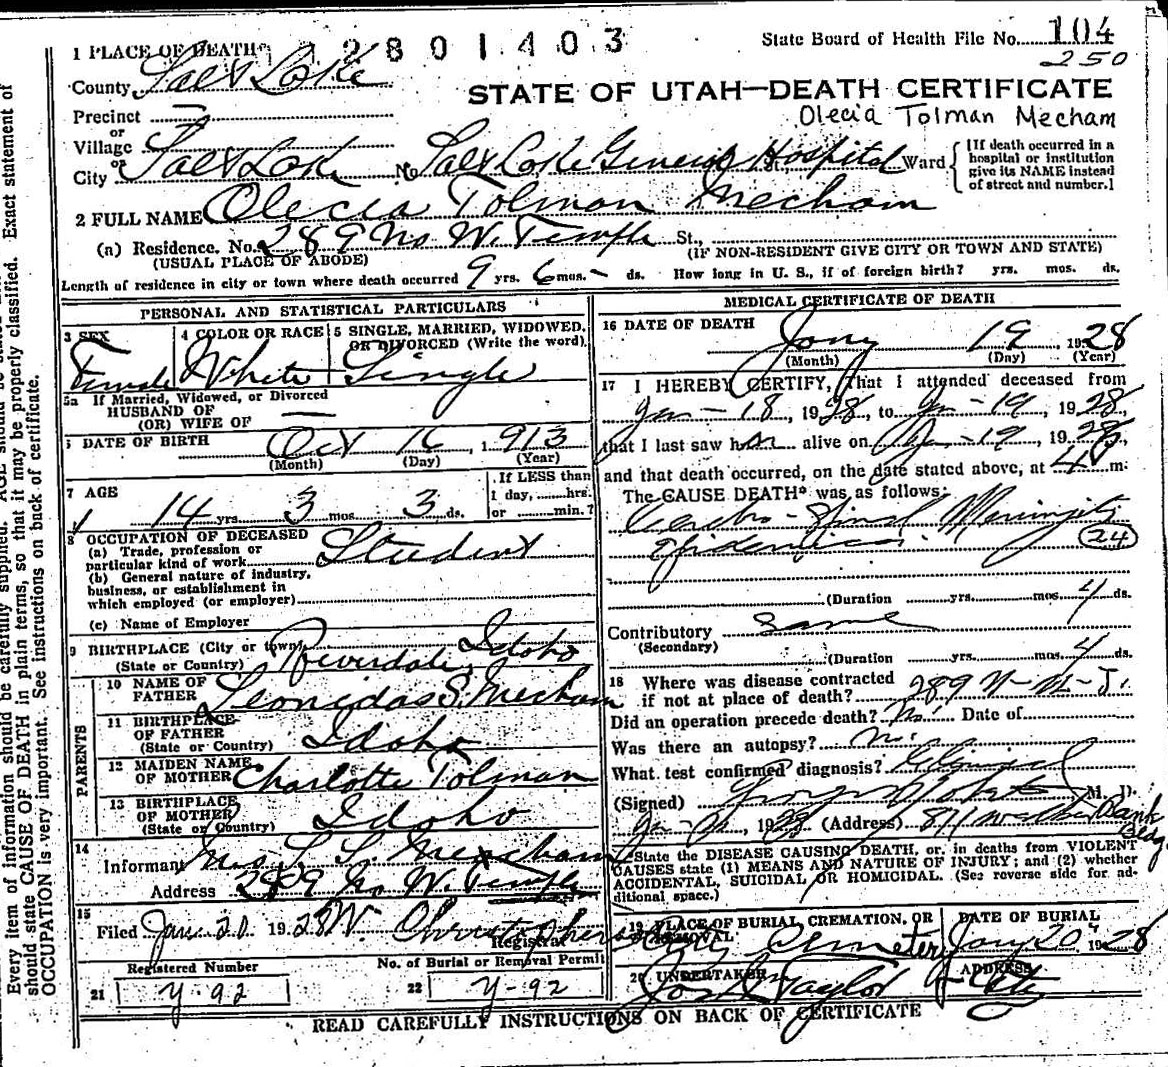 1 PLACE OF DEATH 2801403 State Board of Health File No. 104
250
County Salt Lake STATE OF UTAH—DEATH CERTIFICATE
Precinct Olecia Tolman Mecham
or
Village
or
City Salt Lake No. Salt Lake General Hospital St., Ward
[If death occurred in a
hospital or institution
give its NAME instead
of street and number.]
2 FULL NAME Olecia Tolman Mecham
(a) Residence. No. 289 No. W. Temple St.,
(USUAL PLACE OF ABODE) (IF NON-RESIDENT GIVE CITY OR TOWN AND STATE)
Length of residence in city or town where death occurred 9 yrs. 6 mos. – ds. How long in U. S., if of foreign birth? yrs. mos. ds.
PERSONAL AND STATISTICAL PARTICULARS
3 SEX 4 COLOR OR RACE 5 SINGLE, MARRIED, WIDOWED,
OR DIVORCED (Write the word)
Female White Single
5a If Married, Widowed, or Divorced
HUSBAND OF
(OR) WIFE OF —
6 DATE OF BIRTH Oct 16, 1913
(Month) (Day) (Year)
7 AGE 14 yrs. 3 mos. 3 ds.
If LESS than
1 day, ........hrs.
or ........min.?
8 OCCUPATION OF DECEASED
(a) Trade, profession or
particular kind of work Student
(b) General nature of industry,
business, or establishment in
which employed (or employer)
(c) Name of Employer
9 BIRTHPLACE (City or town) Riverdale, Idaho
(State or Country)
PARENTS
10 NAME OF
FATHER Leonidas S. Mecham
11 BIRTHPLACE
OF FATHER
(State or Country) Idaho
12 MAIDEN NAME
OF MOTHER Charlotte Tolman
13 BIRTHPLACE
OF MOTHER
(State or Country) Idaho
14
Informant Mrs L. S. Mecham
Address 289 No W. Temple
15
Filed Jan. 20, 1928 W. Christopherson
Registrar
Registered Number No. of Burial or Removal Permit
21 Y-92 22 Y-92
MEDICAL CERTIFICATE OF DEATH
16 DATE OF DEATH
Jany 19, 1928
(Month) (Day) (Year)
17 I HEREBY CERTIFY, That I attended deceased from
Jan - 18, 1928, to Jan - 19, 1928,
that I last saw her alive on Jan - 19, 1928,
and that death occurred, on the date stated above, at 4 m.
The CAUSE DEATH* was as follows:
Cerebro-Spinal Meningitis
Epidemica. 24
(Duration yrs. mos. 4 ds.
Contributory same
(Secondary)
(Duration yrs. mos. 4 ds.
18 Where was disease contracted
if not at place of death? 289 N-W-T.
Did an operation precede death? No. Date of
Was there an autopsy? no.
What test confirmed diagnosis? Clinical
(Signed) George Roberts M. D.
1928 (Address) 811 Walker Bank
Bldg.
*State the DISEASE CAUSING DEATH, or, in deaths from VIOLENT
CAUSES state (1) MEANS AND NATURE OF INJURY; and (2) whether
ACCIDENTAL, SUICIDAL OR HOMICIDAL. (See reverse side for ad-
ditional space.)
19 PLACE OF BURIAL, CREMATION, OR
REMOVAL City Cemetery
DATE OF BURIAL
Jany 20" 1928
20 UNDERTAKER ADDRESS
Jos. E. Taylor City
READ CAREFULLY INSTRUCTIONS ON BACK OF CERTIFICATE
Every item of information should be carefully supplied. AGE should be stated
should state CAUSE OF DEATH in plain terms, so that it may be properly classified. Exact statement of
OCCUPATION is very important. See instructions on back of certificate.